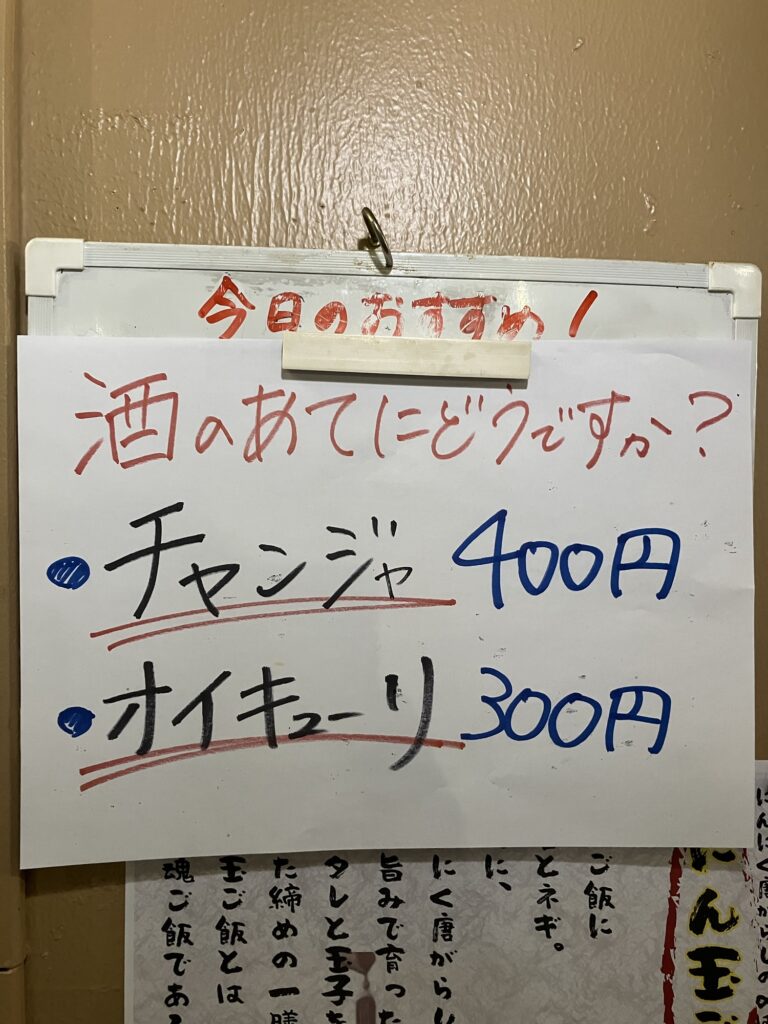 今日のおすすめ!
酒のあてにどうですか?
•チャンジャ 400円
•オイキューリ 300円
にんにく唐がらしの
にん玉ご
ご飯に
とネギ。
に、
にく唐がらし
旨みで育った
タレと玉子を
た締めの一膳
玉ご飯とは
魂ご飯である